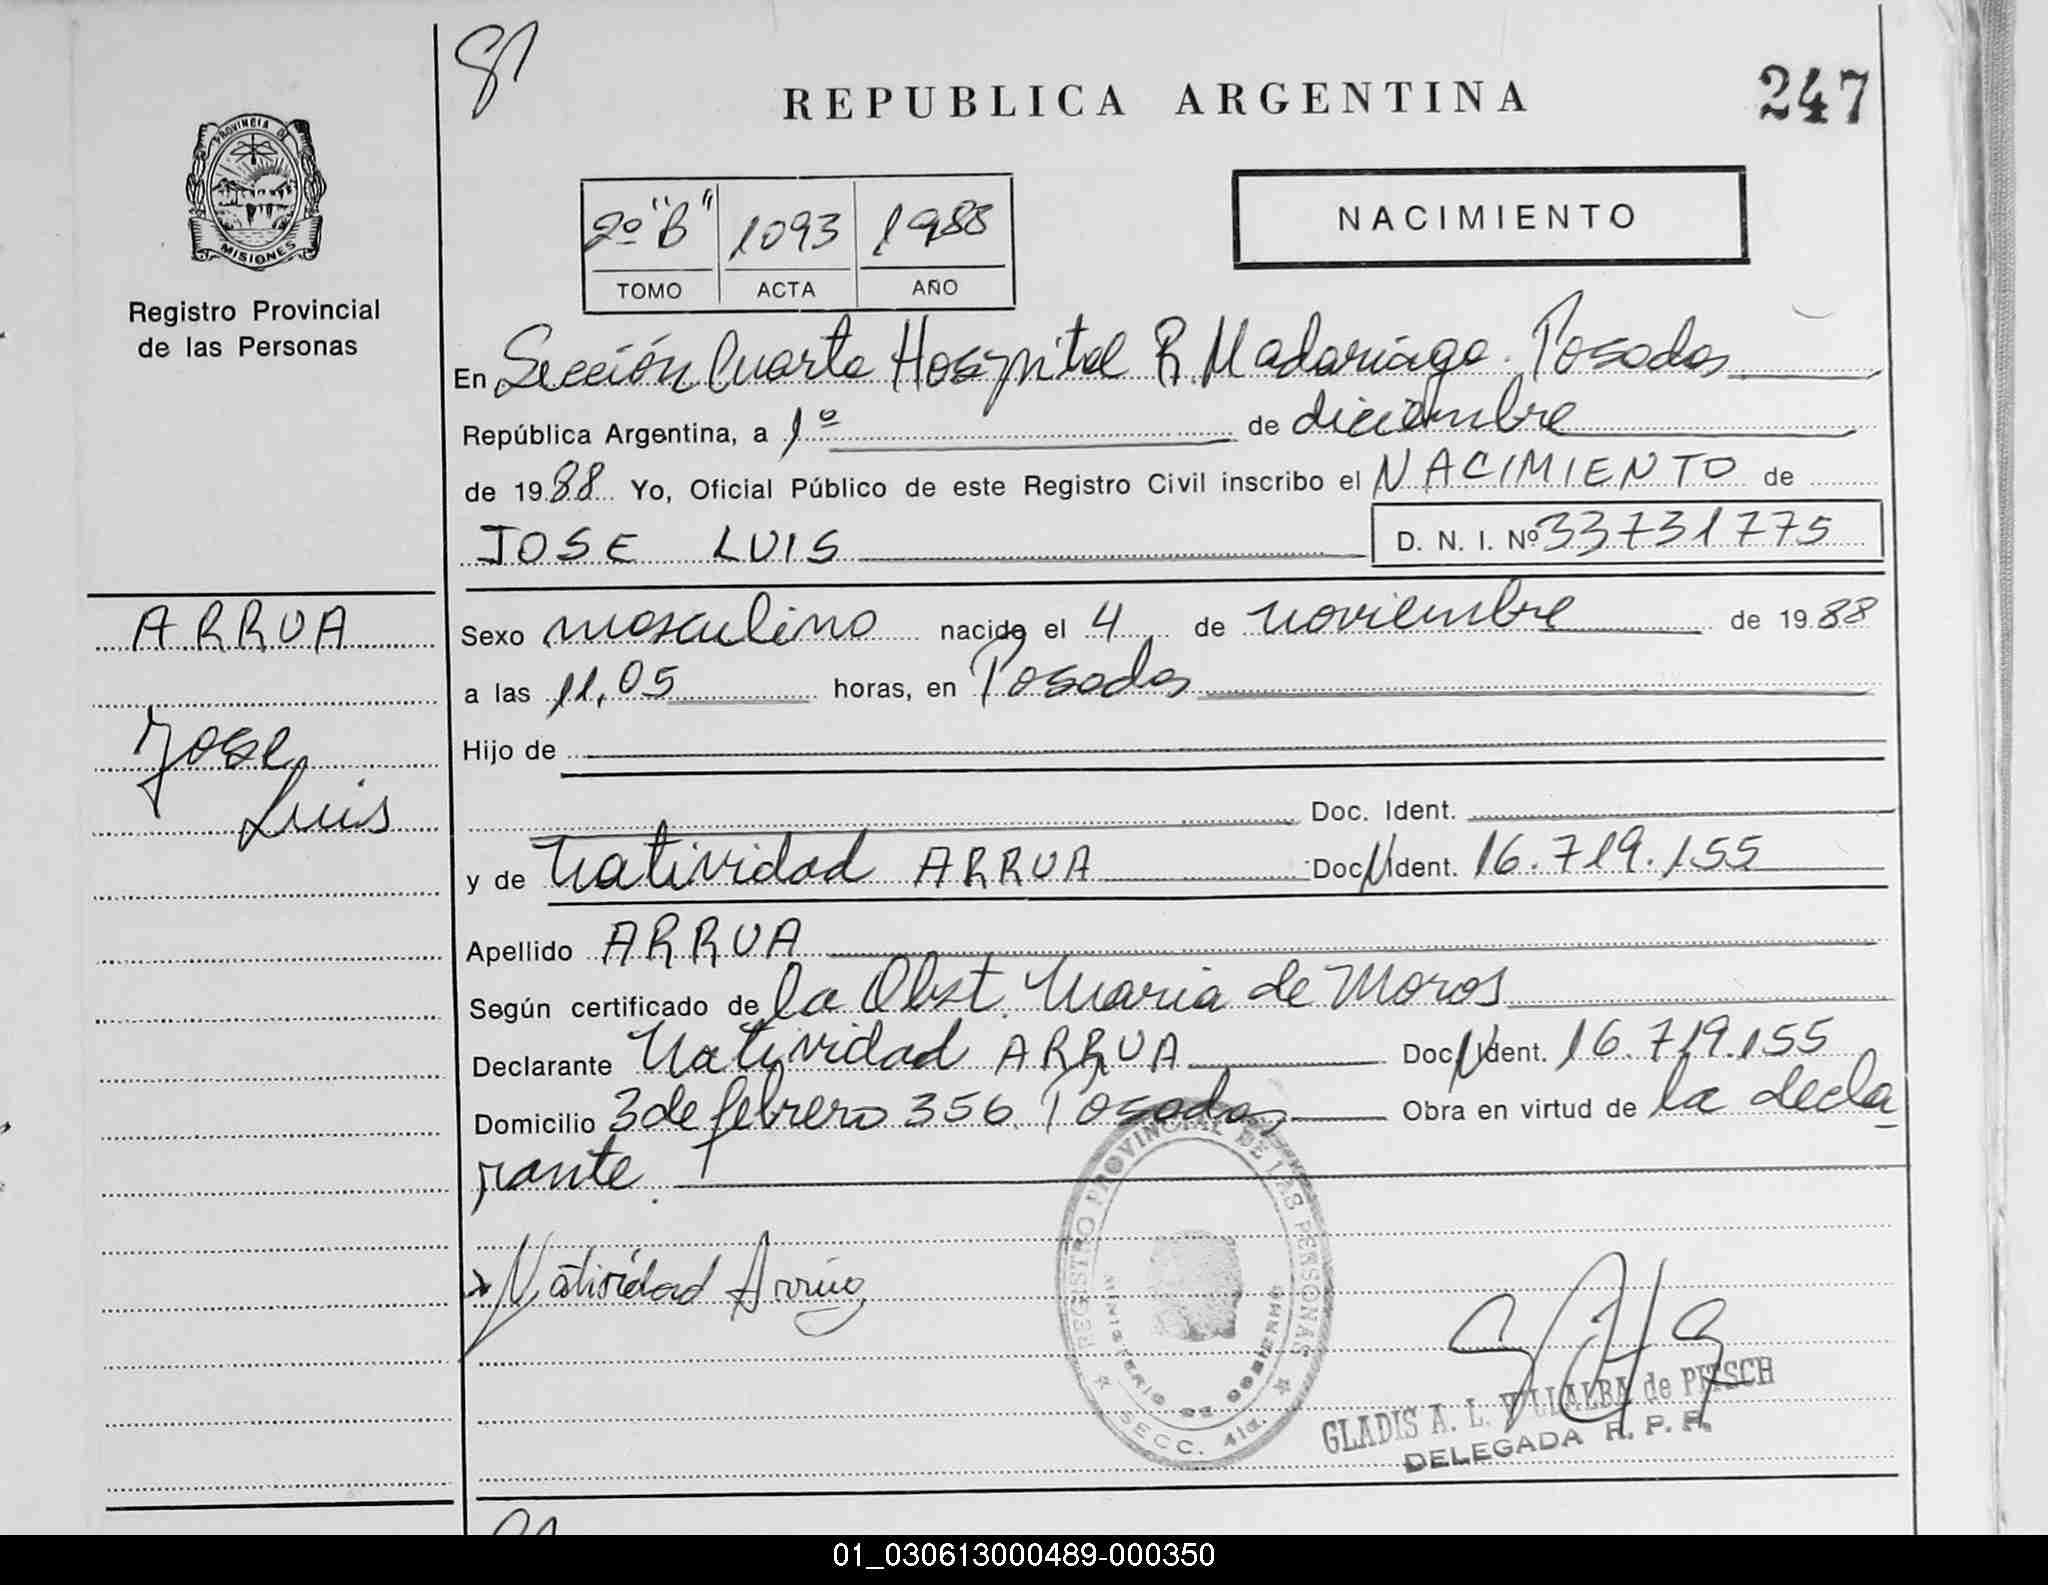 81
REPUBLICA ARGENTINA
247
PROVINCIA DE
MISIONES
Registro Provincial
de las Personas
2º "B" 1093 1988
TOMO ACTA AÑO
NACIMIENTO
En Sección Cuarta Hospital R. Madariaga. Posadas
República Argentina, a 1º de diciembre
de 1988 Yo, Oficial Público de este Registro Civil inscribo el NACIMIENTO de
JOSE LUIS D. N. I. Nº 33731775
ARRUA
Jose
Luis
Sexo masculino nacido el 4 de noviembre de 1988
a las 11,05 horas, en Posadas
Hijo de
Doc. Ident.
y de Natividad ARRUA Doc. Ident. 16.719.155
Apellido ARRUA
Según certificado de la Obst. Maria de Moros
Declarante Natividad ARRUA Doc. Ident. 16.719.155
Domicilio 3 de febrero 356. Posadas Obra en virtud de la decla
rante.
Natividad Arrua
REGISTRO PROVINCIAL DE LAS PERSONAS
MINISTERIO DE GOBIERNO
SECC. 4ta.
GLADIS A. L. VILLALBA de PITSCH
DELEGADA R. P. P.
01_030613000489-000350